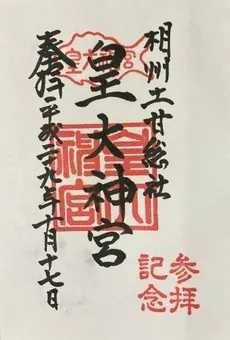 相州土甘総社
皇大神宮
奉拝 平成二十九年十一月十七日
皇大神宮
参拝
記念